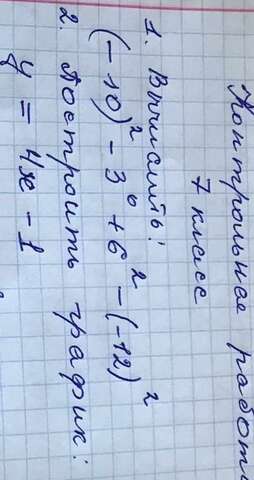 Контрольная работа
7 класс
1. Вычислить:
(-10)² - 3⁰ + 6² - (-12)²
2. Построить график:
y = 4x - 1